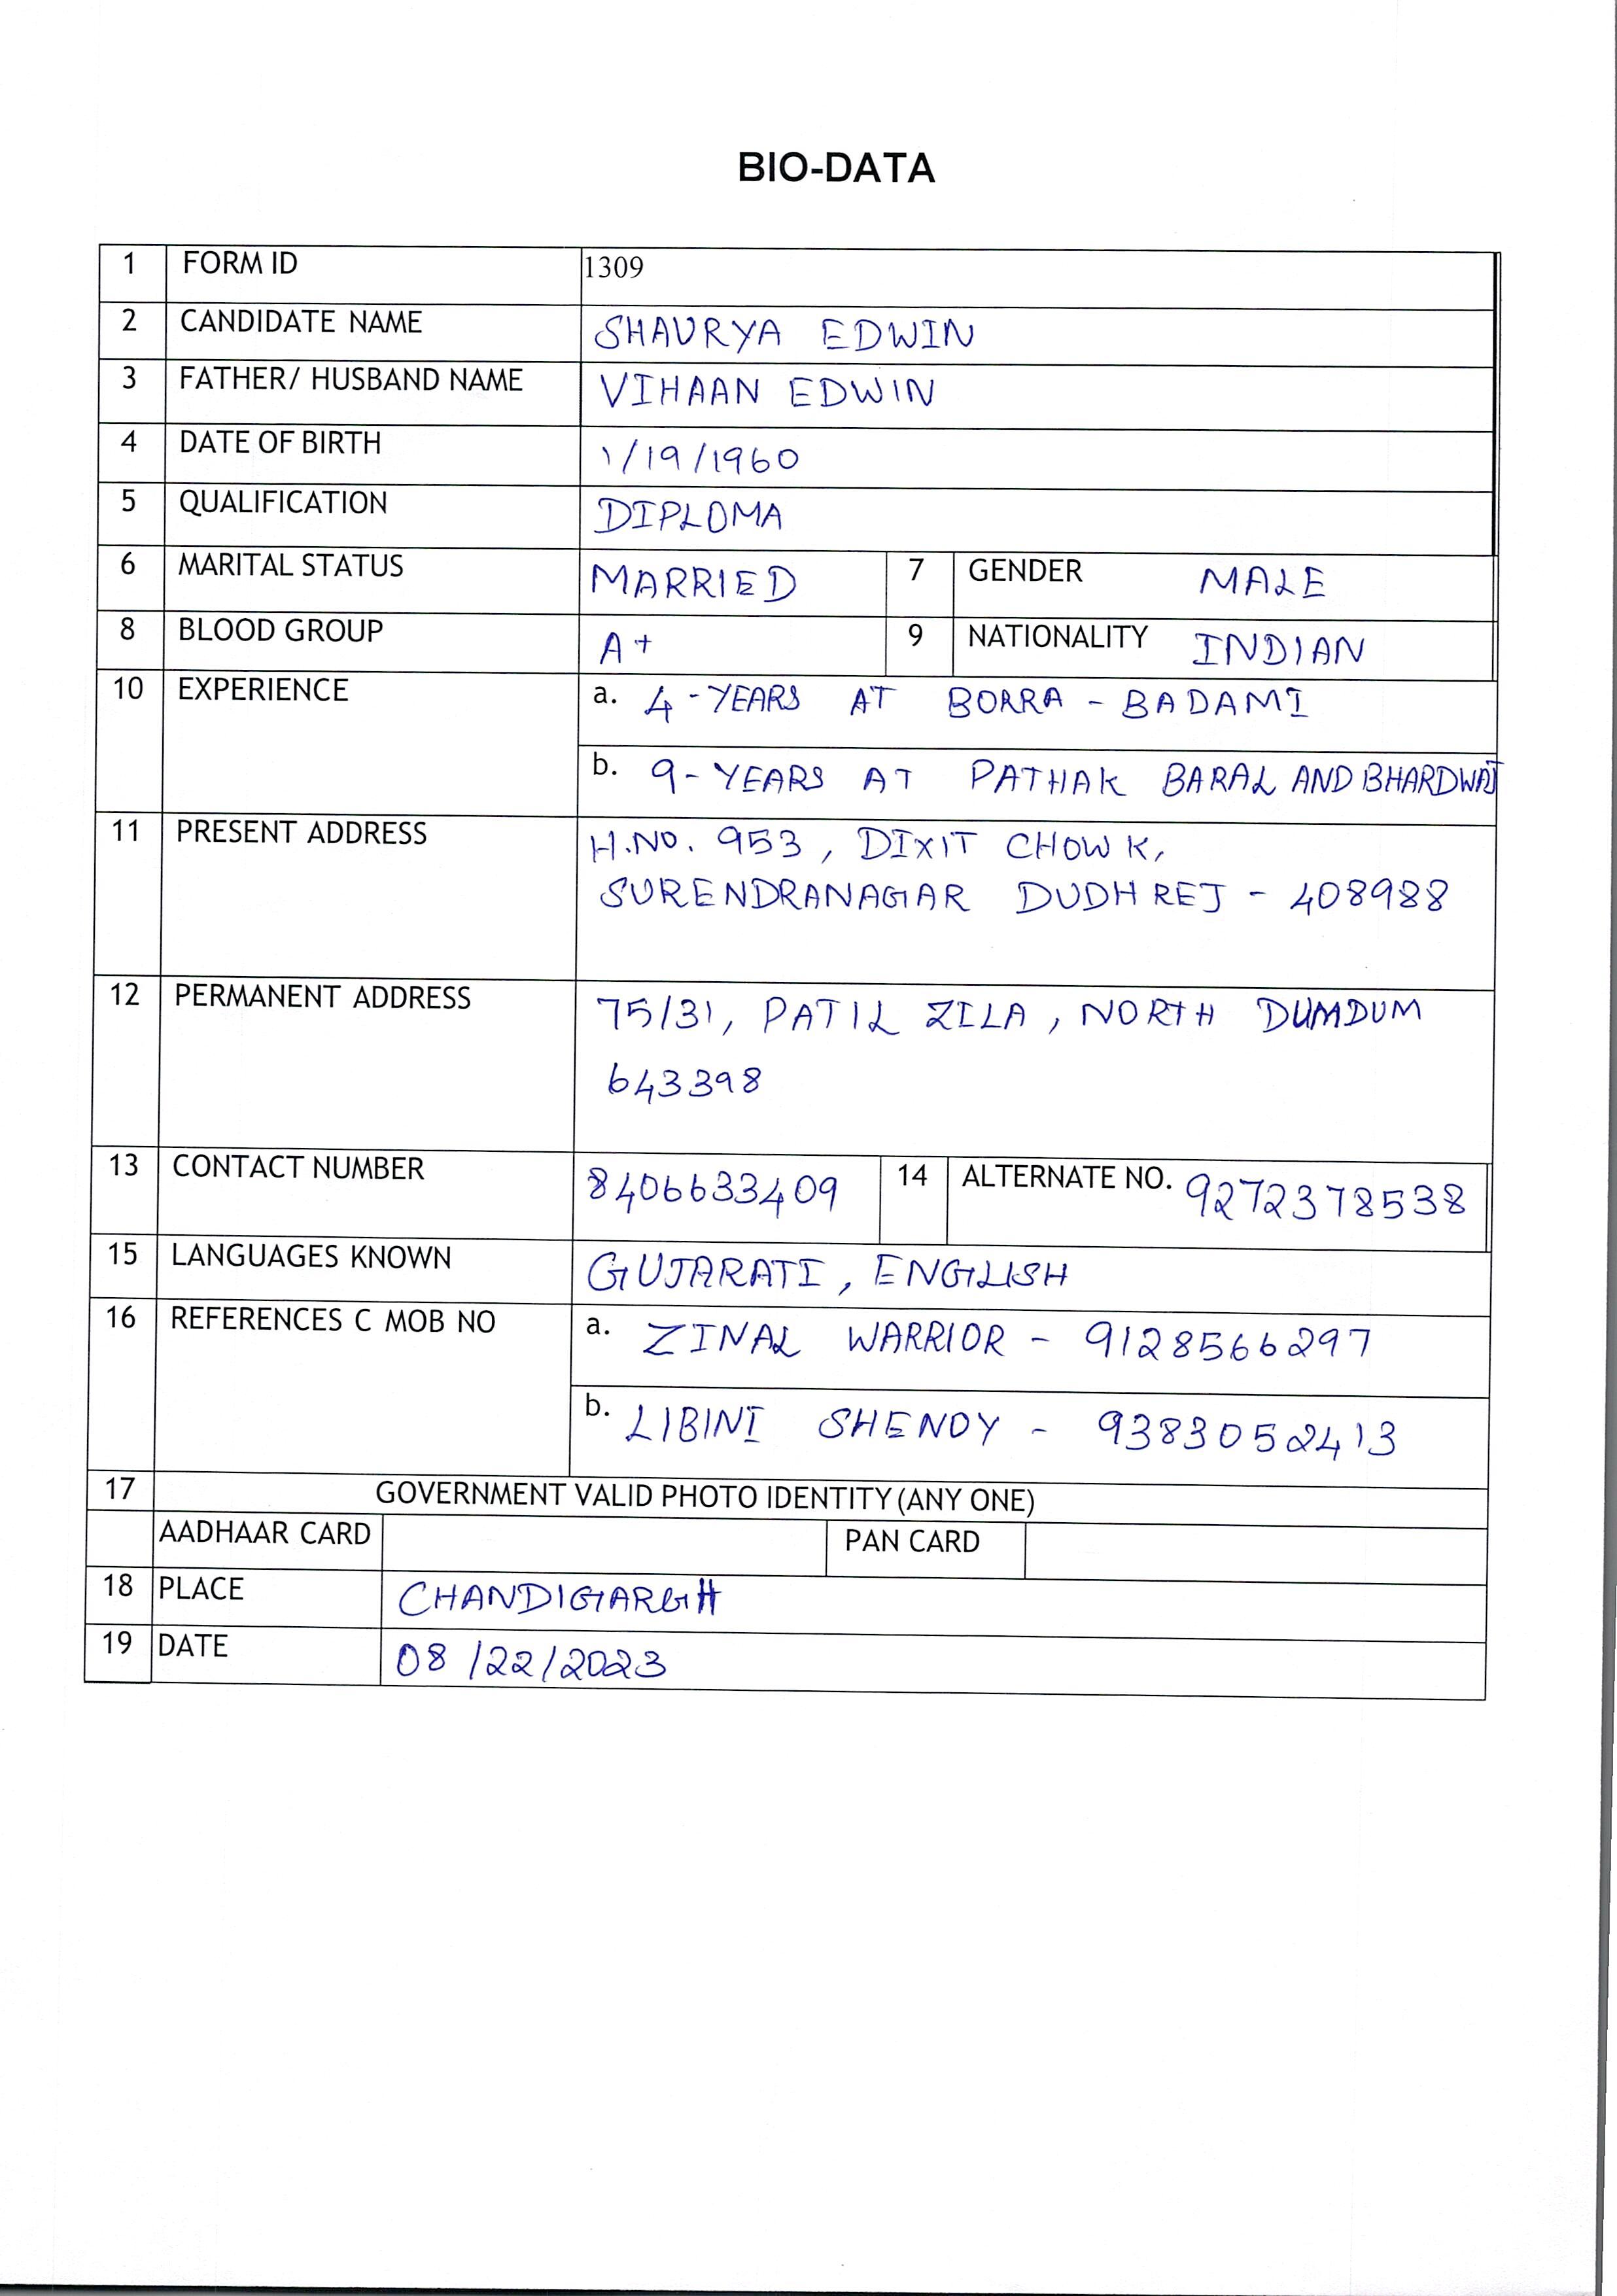 BIO-DATA
1 FORM ID 1309
2 CANDIDATE NAME SHAURYA EDWIN
3 FATHER/ HUSBAND NAME VIHAAN EDWIN
4 DATE OF BIRTH 1/19/1960
5 QUALIFICATION DIPLOMA
6 MARITAL STATUS MARRIED 7 GENDER MALE
8 BLOOD GROUP A+ 9 NATIONALITY INDIAN
10 EXPERIENCE a. 4-YEARS AT BORRA - BADAMI
b. 9-YEARS AT PATHAK BARAL AND BHARDWAJ
11 PRESENT ADDRESS H.NO. 953, DIXIT CHOWK,
SURENDRANAGAR DUDHREJ - 408988
12 PERMANENT ADDRESS 75/31, PATIL ZILA, NORTH DUMDUM
643398
13 CONTACT NUMBER 8406633409 14 ALTERNATE NO. 9272378538
15 LANGUAGES KNOWN GUJARATI, ENGLISH
16 REFERENCES C MOB NO a. ZINAL WARRIOR - 9128566297
b. LIBINI SHENOY - 9383052413
17 GOVERNMENT VALID PHOTO IDENTITY (ANY ONE)
AADHAAR CARD PAN CARD
18 PLACE CHANDIGARGH
19 DATE 08/22/2023